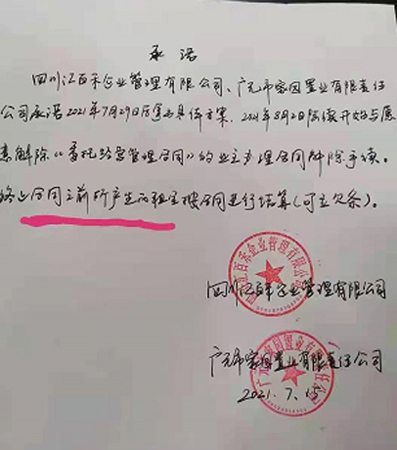 承诺
四川江百禾企业管理有限公司、广元市家园置业有限责任
公司承诺2021年7月29日前拿出具体方案,2021年8月2日陆续开始与愿
意解除《委托经营管理合同》的业主办理合同解除手续。
终止合同之前所产生的租金按合同进行结算(可立欠条)。
四川江百禾企业管理有限公司
广元市家园置业有限责任公司
2021.7.15